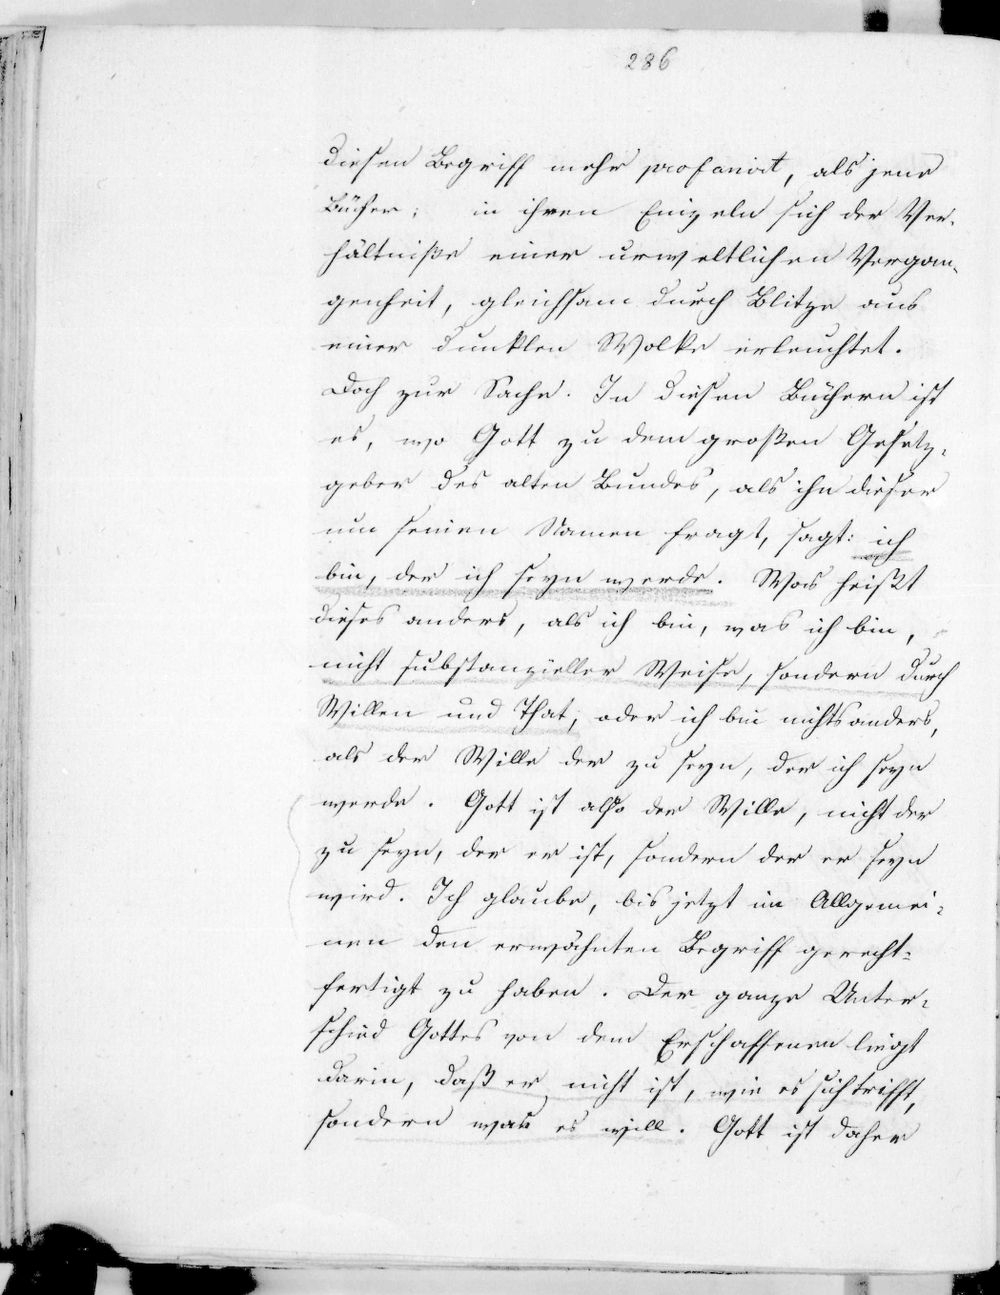 286
diesen Begriff mehr profanirt, als jene
Bücher; in ihren Einzeln sich der Ver-
hältniße einer urweltlichen Vergan-
genheit, gleichsam durch Blitze aus
einer dunklen Wolke erleuchtet.
Doch zur Sache. In diesen Büchern ist
es, wo Gott zu dem großen Gesetz-
geber des alten Bundes, als ihn dieser
um seinen Namen fragt, sagt: ich
bin, der ich seyn werde. Was heißt
dieses anders, als ich bin, was ich bin,
nicht substanzieller Weise, sondern durch
Willen und That, oder ich bin nichts anders,
als der Wille der zu seyn, der ich seyn
werde. Gott ist also der Wille, nicht der
zu seyn, der er ist, sondern der er seyn
wird. Ich glaube, bis jetzt im Allgemei-
nen den erwähnten Begriff gerecht-
fertigt zu haben. Der ganze Unter-
schied Gottes von dem Erschaffenen liegt
darin, daß er nicht ist, wie es sich trifft,
sondern was es will. Gott ist daher